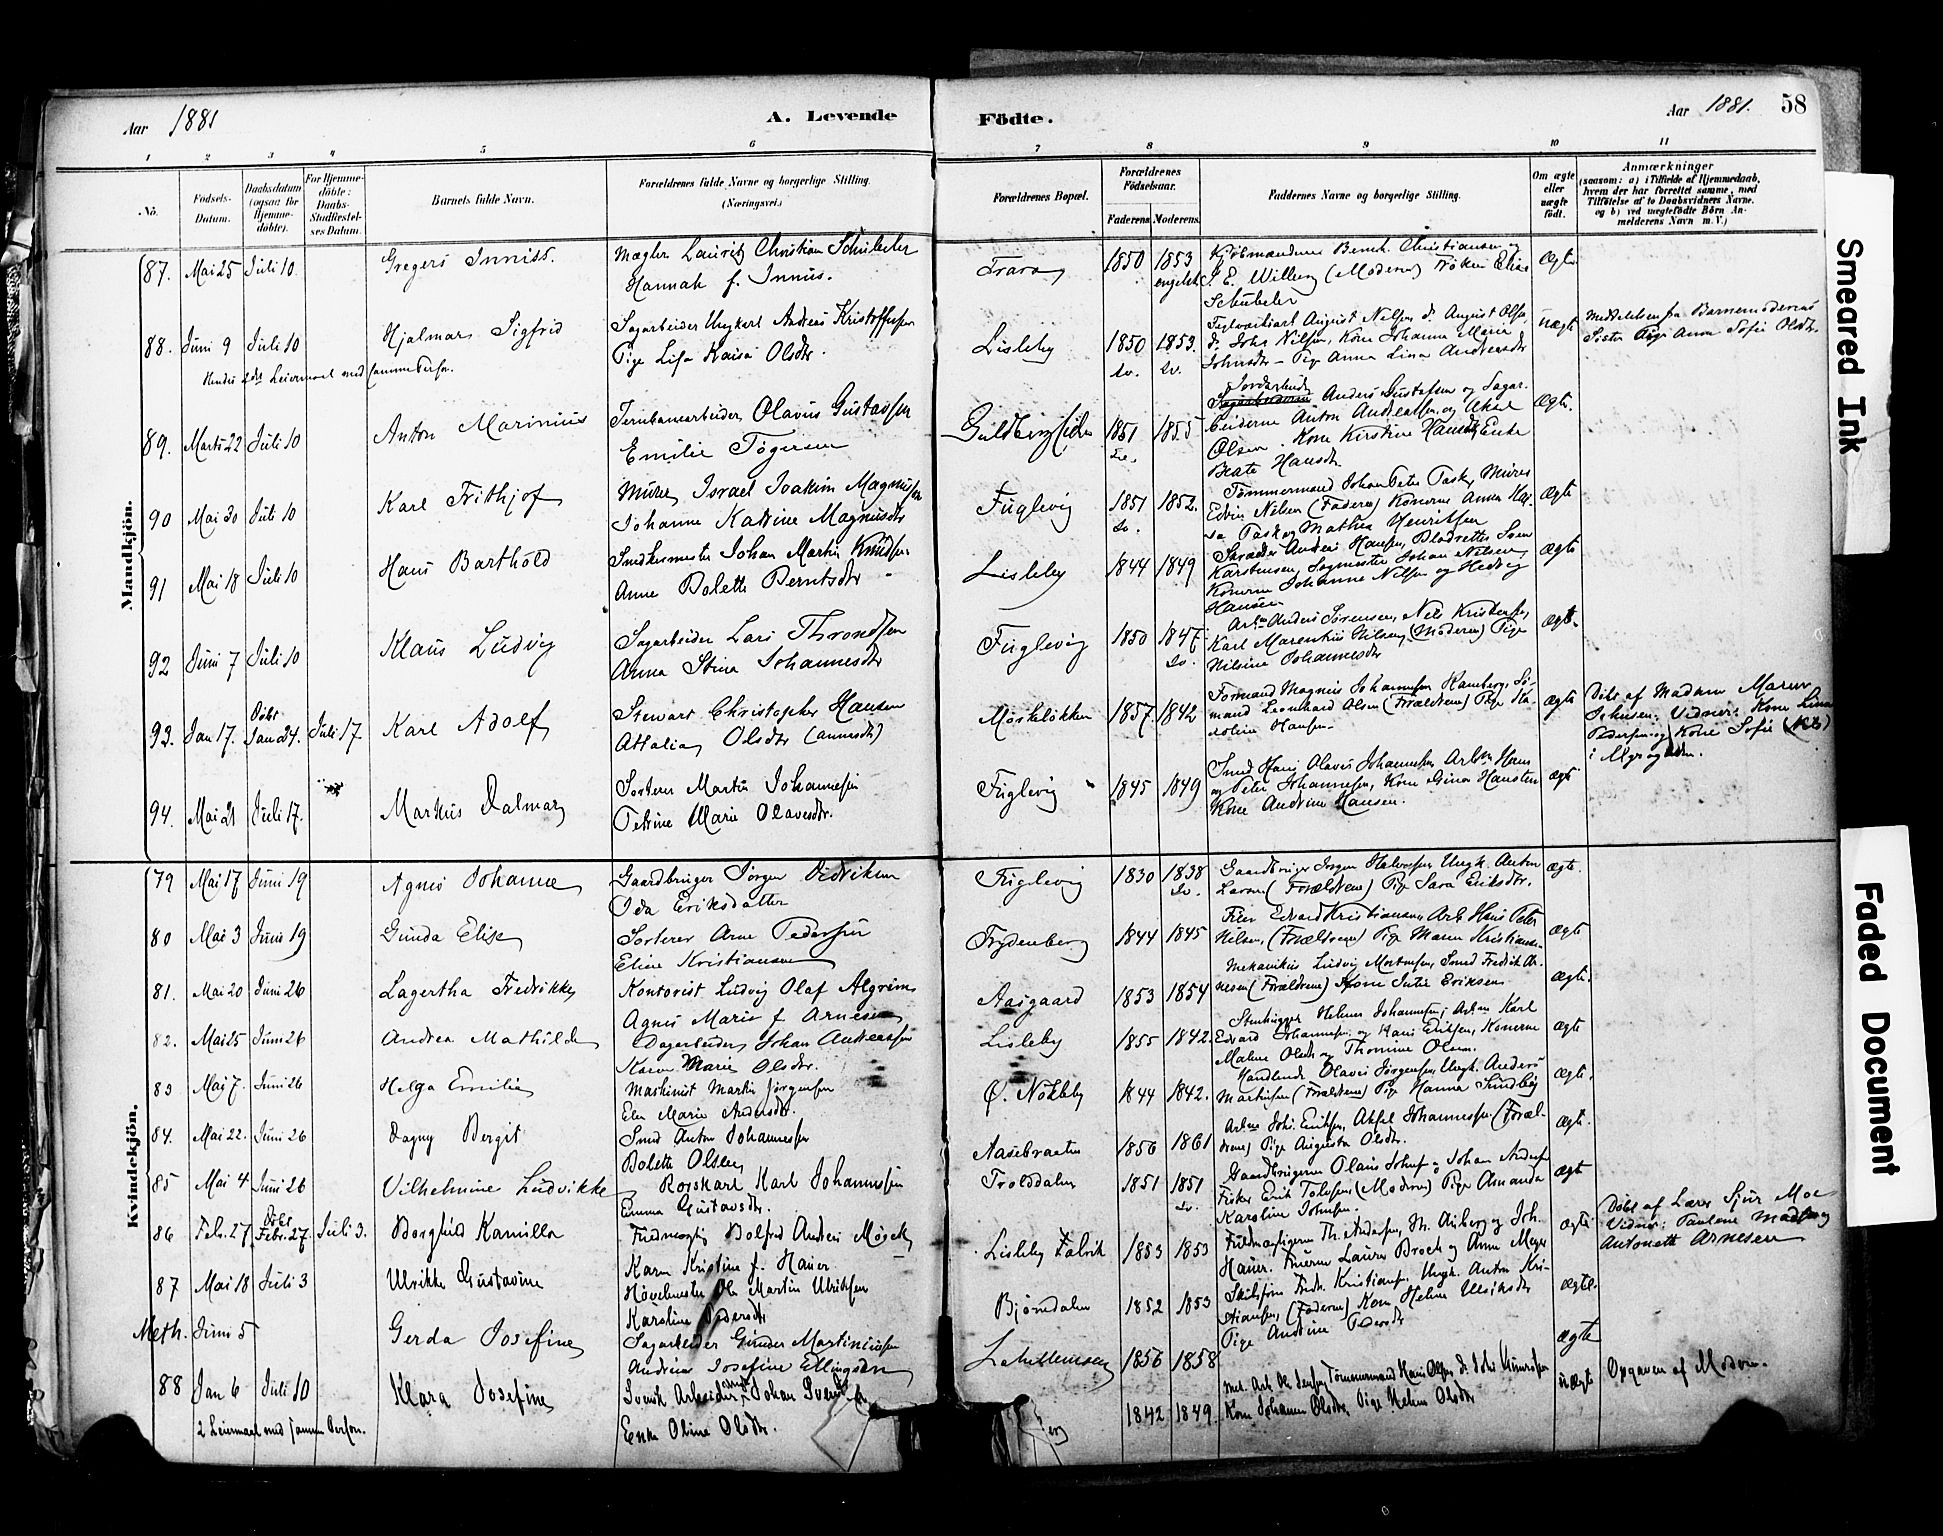 Aar 1881
A. Levende
Födte.
Aar 1881.
58
1 2 3 4 5 6 7 8 9 10 11
No.
Födsels-Datum.
Daabsdatum (ogsaa for Hjemmedöbte).
For Hjemmedöbte: Daabs-Stadfæstelses Datum.
Barnets fulde Navn.
Forældrenes fulde Navne og borgerlige Stilling. (Næringsvei.)
Forældrenes Bopæl.
Forældrenes Födselsaar.
Faderens. Moderens.
Faddernes Navne og borgerlige Stilling.
Om ægte eller uægte födt.
Anmærkninger
(saasom: a) i Tilfælde af Hjemmedaab, hvem der har forrettet samme, med Tilföielse af to Daabsvidners Navne. og b) ved uægtefödte Börn Anmelderens Navn m. V.)
Mandkjön.
87. Mai 25 Juli 10. Gregers Inniss.
Mægler Lauritz Christian Schübeler
Hannah f. Inniss.
Trara 1850 1853 engelsk
Kjöbmændene Bernh. Christiansen og
S. E. Willery (Moderen) Fröken Elise
Schübeler
Ægte
88. Juni 9 Juli 10 Hjalmar Sigfrid
Hendes 2det Leiermaal med samme Person.
Sagarbeider Ungkarl Andreas Kristoffersen
Pige Lisa Kaisa Olsdtr.
Lisleby 1850 sv. 1853. sv.
August Nilsen, do August Olsen,
do Johs Nilsen, Kone Johanne Marie
Johnsdtr – Pige Anna Lina Andreasdtr
uægte
Meddelelsen fra Barnemoderens
Söster Pige Anna Sofie Olsdtr
89. Marts 22 Juli 10 Anton Marinius
Jernbanearbeider Olavus Gustavsen
Emilie Tögersen
Guldbergsiden 1851 sv. 1855
Jordarbeider Anders Gustafsen og Sagar-
beiderne Anton Andreassen og Aksel
Olsen. Kone Kirstine Hansdtr Enke
Beate Hansdtr
Ægte.
90 Mai 30 Juli 10 Karl Frithjof
Murer Israel Joakim Magnusen
Johanne Katrine Magnusdtr
Fuglevig 1851 sv. 1852.
Tömmermand Johan Peter Pask, Murer
Edvin Nilsen (Faderen) Konerne Anna Kai-
sa Pask og Mathea Henriksen
Ægte
91 Mai 18 Juli 10 Hans Barthold
Snedkermester Johan Martin Knudsen
Anne Bolette Berntsdtr
Lisleby 1844 1849
Skrædder Anders Hansen, Pladsætter Sven
Karstensen, Sagmester Johan Nilsen,
Konerne Johanne Nilsen og Hedvig
Hansen
Ægte
92 Juni 7 Juli 10 Klaus Ludvig
Sagarbeider Lars Throndsen
Anna Stina Johannesdtr
Fuglevig 1850 1847 sv.
Arb. Anders Sörensen, Nils Kristensen,
Karl Marentius Nilsen, (Moderen) Pige
Nilsine Johannesdtr
Ægte.
93. Jan 17. Döbt Jan 24. Juli 17. Karl Adolf
Stewart Christopher Hansen
Athalia Olsdtr
Mörkelökken 1857 1842
Formand Magnus Johannesen Hamberg, Sö-
mand Leonhard Olsen (Forældrene) Pige Ka-
roline Hansen
Ægte
Döbt af Madam Maren
Johnsen; Vidner: Kone Lina
Pedersen og Kone Sofie
94. Mai 21 Juli 17. Markus Dalmar
Sorterer Martin Johannesen
Petrine Marie Olavesdtr.
Fuglevig 1845 1849
Smed Hans Olaves Johannesen Arb. Hans
og Peter Johannesen, Kone Gina Hansten
Kone Andrine Hansen.
Ægte
Kvindekjön.
79 Mai 17 Juni 19 Agnes Johanne
Gaardbruger Jörgen Didriksen
Ida Eriksdatter
Fuglevig 1830 1838 sv.
Gaardbruger Jörgen Halvorsen Ungk. Anton
Larsen (Forældrene) Pige Sara Eriksdtr.
ægte.
80 Mai 3 Juni 19 Gunda Elise
Sorterer Arne Pedersen
Eline Kristiansen
Frydenberg 1844 1845
Edvard Kristiansen, Arb. Hans Peter
Nilsen, (Forældrene) Pige Maren Kristiansen
ægte
81. Mai 20 Juni 26 Lagertha Fredrikke
Kontorist Ludvig Olaf Algrim
Agnes Marie f. Arnesen
Aasgaard 1853 1854
Mekanikus Ludvig Mortensen, Smed Fredrik Ar-
nesen (Forældrene) Kone Julie Eriksen
ægte.
82. Mai 25 Juni 26 Andrea Mathilde
Dagarbeider Johan Andreassen
Karen Marie Olsdtr.
Lisleby 1855 1842.
Stenhugger Helmer Johannesen, Arb. Karl
Edvard Johannesen og Hans Eriksen, Konerne
Malene Olsen og Thomine Olsen.
ægte
83 Mai 7. Juni 26 Helga Emilie
Maskinist Martin Jörgensen
Elen Marie Andersdtr.
Ö. Nökleby 1844 1842.
Handlende Olaves Jörgensen, Ungk. Anders
Martinsen (Forældrene) Pige Hanna Sundby
ægte.
84. Mai 22. Juni 26 Dagny Bergit
Smed Anton Johannessen
Bolette Olsen
Aasebraaten 1856 1861
Arb. Johs. Eriksen, Aksel Johannessen (Foræl-
drene) Pige Augusta Olsdtr.
ægte.
85 Mai 4 Juni 26 Vilhelmine Ludvikke
Rorskarl Karl Johannesen
Emma Gustavsdtr.
Trolddalen 1851 1851 sv.
Gaardbrugerne Olaus Johns. og Johan Andersen
Fisker Erik Tolefsen (Moderen) Pige Amanda
Karoline Johnsen.
ægte
86 Febr. 27 Döbt Febr. 27. Juli 3. Borghild Kamilla
Fuldmægtig Bolfred Andreas Mögek
Karen Kristine f. Hauer.
Lisleby Fabrik 1853 1853
Fuldmægtigerne Th. Andersen, M. Asberg og Joh.
Hauer. Fruerne Laura Broch og Anna Meyer
ægte
Döbt af Lærer Sjur Moe
Vidner: Paulene Madsen og
Antonette Arnesen
87 Mai 18 Juli 3 Ulrikke Gustavine
Hövelmester Ole Martin Ulriksen
Karoline Pedersdtr
Björndalen 1852 1853
Skibsförer Fredr. Kristians., Ungk. Anton Kri-
stiansen, (Faderen) Kone Helene Ulriksdtr
Pige Andrine Pedersdtr
ægte.
Meth. Juni 5 Gerda Josefine
Sagarbeider Gunder Martiniusen
Andrea Josefine Ellingsdtr
1856 1858
ægte
88 Jan 6 Juli 10 Klara Josefine
2 Leiermaal med samme Person.
Svensk Arbeider Johan
Enke Oline Olsdtr.
1842 1849.
Tömmermand Hans Olsen,
Kone Johanne Olsdtr, Pige Helene Olsdtr
uægte
Opgaven af Moderen.
Smeared Ink
Faded Document